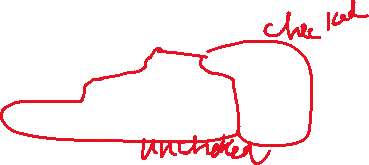 checked
unchecked